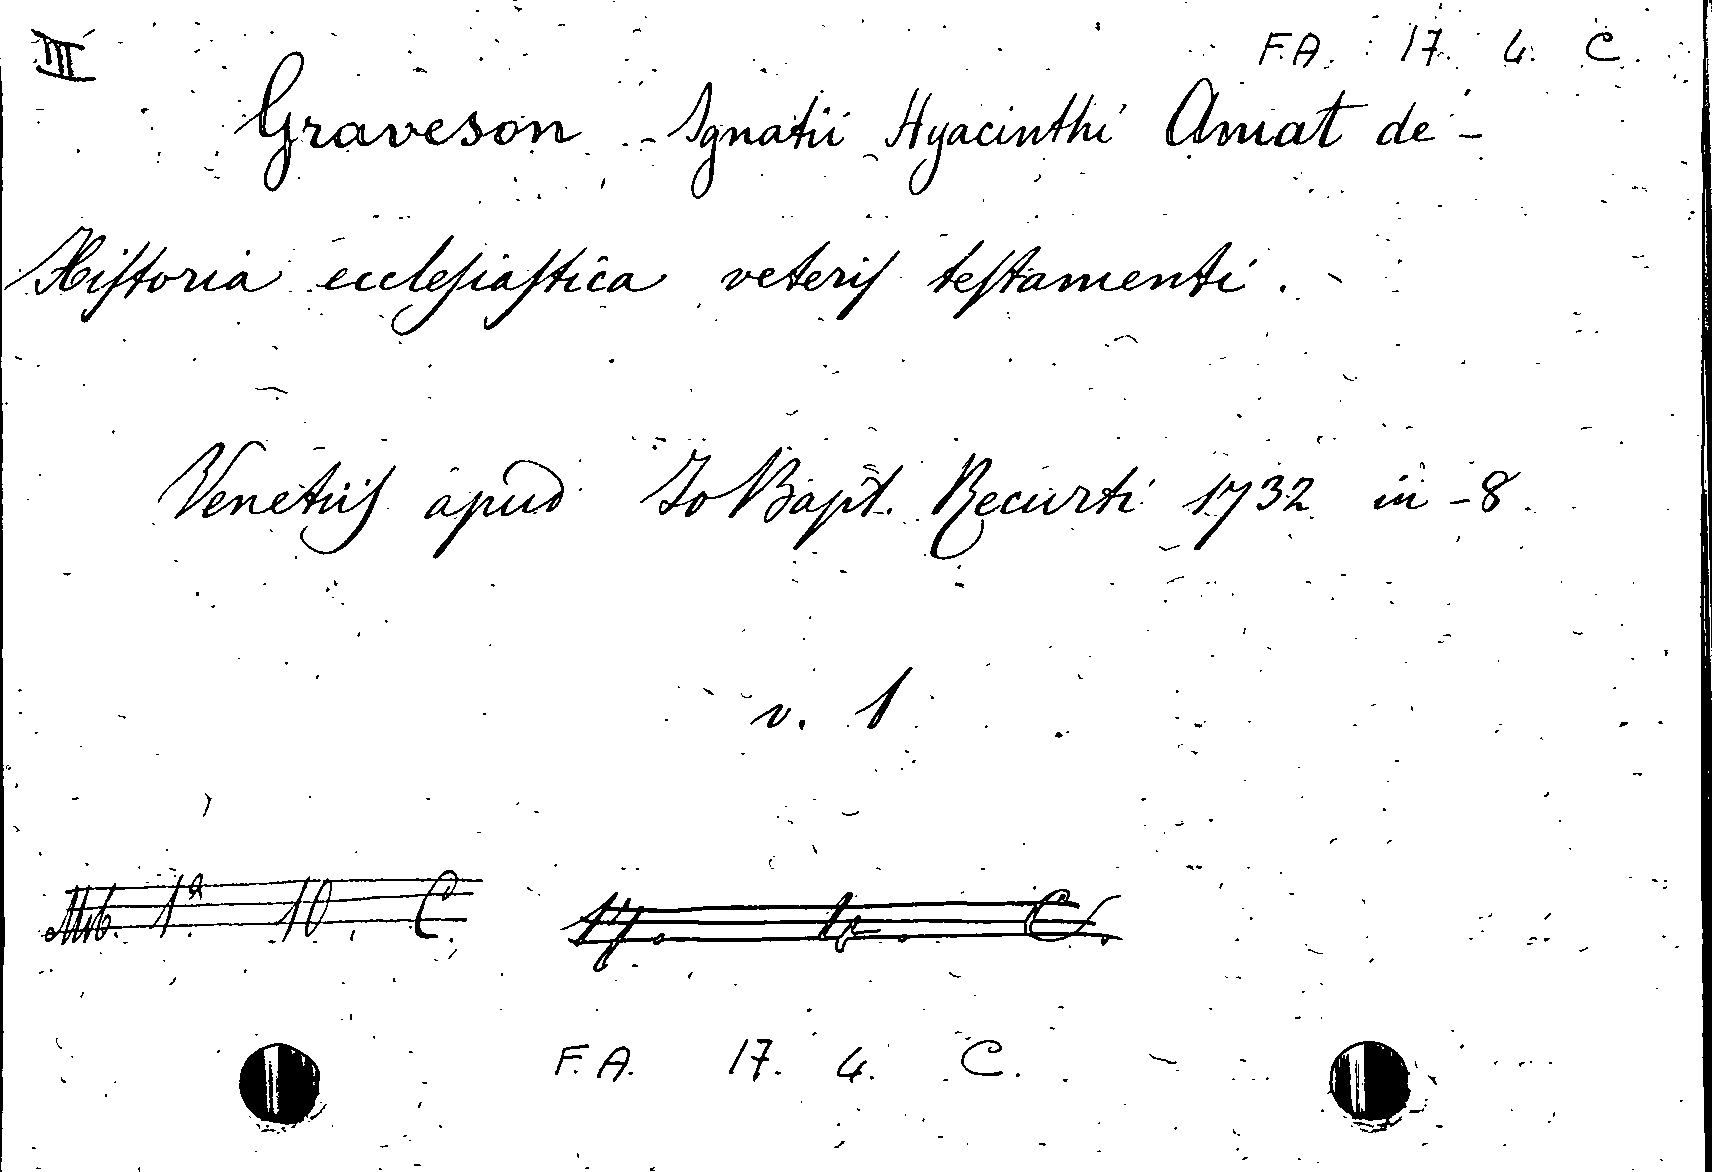 III F.A. 17. 4. C.
Graveson - Ignatii Hyacinthi Amat de -
Hiſtoria eccleſiaſtica veteriſ teſtamenti.
Venetiiſ apud Jo Bapt. Recurti 1732 in - 8.
v. 1
Mob. 1ª 10. C. 17. 4. C.
F.A. 17. 4. C.